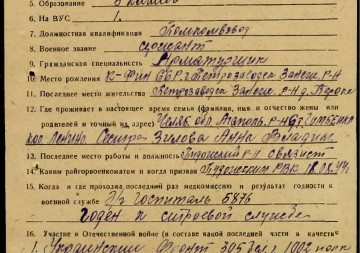 5. Образование
6. На ВУС 1.
7. Должностная квалификация Помкомвзвод
8. Военное звание сержант
9. Гражданская специальность Арматурщик
10. Место рождения К-Фин ССР г. Петрозаводск Заонеж. Р-Н
11. Последнее место жительства Петрозаводск Заонеж. Р-Н д.
12. Где проживает в настоящее время семья (фамилия, имя и отчество жены или
родителей и точный их адрес) Челяб. обл.
Ленина. Сестра Зилова Анна Владим.
13. Последнее место работы и должность Р-Н связист
14. Каким райгорвоенкоматом и когда призван РВК 18.18.44г.
15. Когда и где проходил последний раз медкомиссию и результат годности к
военной службе Э/Госпиталь 5876
годен к строевой службе
16. Участие в Отечественной войне (в составе какой последней части и в качестве
1. Украинский Фронт 305 1002 полк